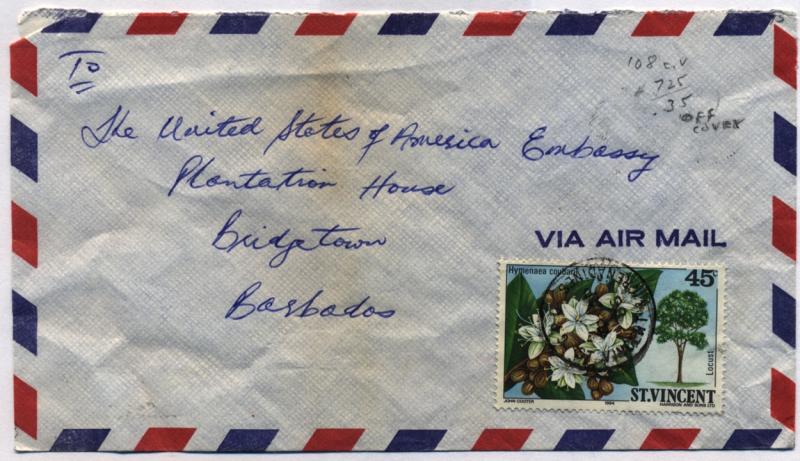 To
The United States of America Embassy
Plantation House
Bridgetown
Barbados
108
725
.35
OFF
COVER
VIA AIR MAIL
Hymenaea courbaril
45c
Locust
ST.VINCENT
JOHN COOTER
1984
HARRISON AND SONS LTD